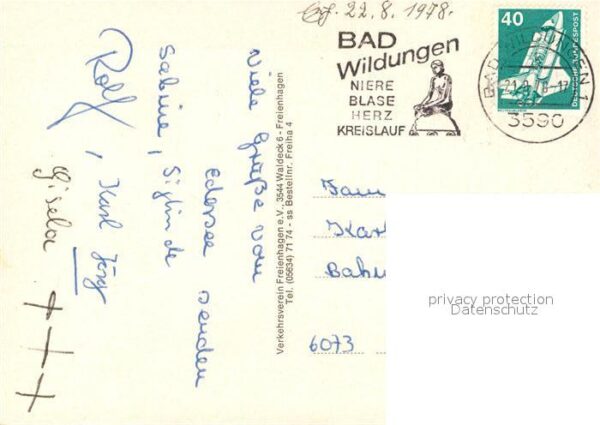 Viele Grüße vom
Edersee senden
Sabine, Siglinde
Rolf, Karl Jörg
Gisela
+++
Verkehrsverein Freienhagen e.V., 3544 Waldeck 6 - Freienhagen
Tel. (05634) 71 74 - ss Bestellnr. Freiha 4
22.8.1978.
BAD
Wildungen
NIERE
BLASE
HERZ
KREISLAUF
40
DEUTSCHE BUNDESPOST
BAD WILDUNGEN 1
3590
Fam
Karl
Bahn
6073
privacy protection
Datenschutz